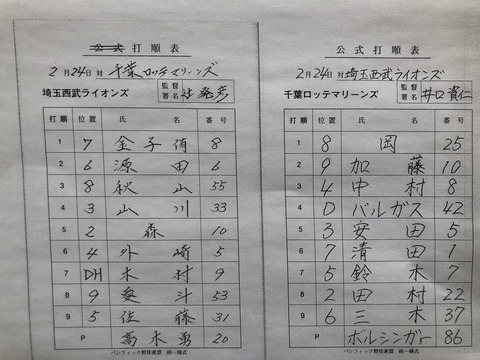 公式打順表
2月24日 対 千葉ロッテマリーンズ
埼玉西武ライオンズ 監督署名 辻 発彦
打順 位置 氏名 番号
1 7 金子侑 8
2 6 源田 6
3 8 秋山 55
4 3 山川 33
5 2 森 10
6 4 外崎 5
7 DH 木村 9
8 9 愛斗 53
9 5 佐藤 31
P 高木勇 20
パシフィック野球連盟 統一様式
公式打順表
2月24日 対 埼玉西武ライオンズ
千葉ロッテマリーンズ 監督署名 井口資仁
打順 位置 氏名 番号
1 8 岡 25
2 9 加藤 10
3 4 中村 8
4 D バルガス 42
5 3 安田 5
6 7 清田 1
7 5 鈴木 7
8 2 田村 22
9 6 三木 37
P ボルシンガー 86
パシフィック野球連盟 統一様式